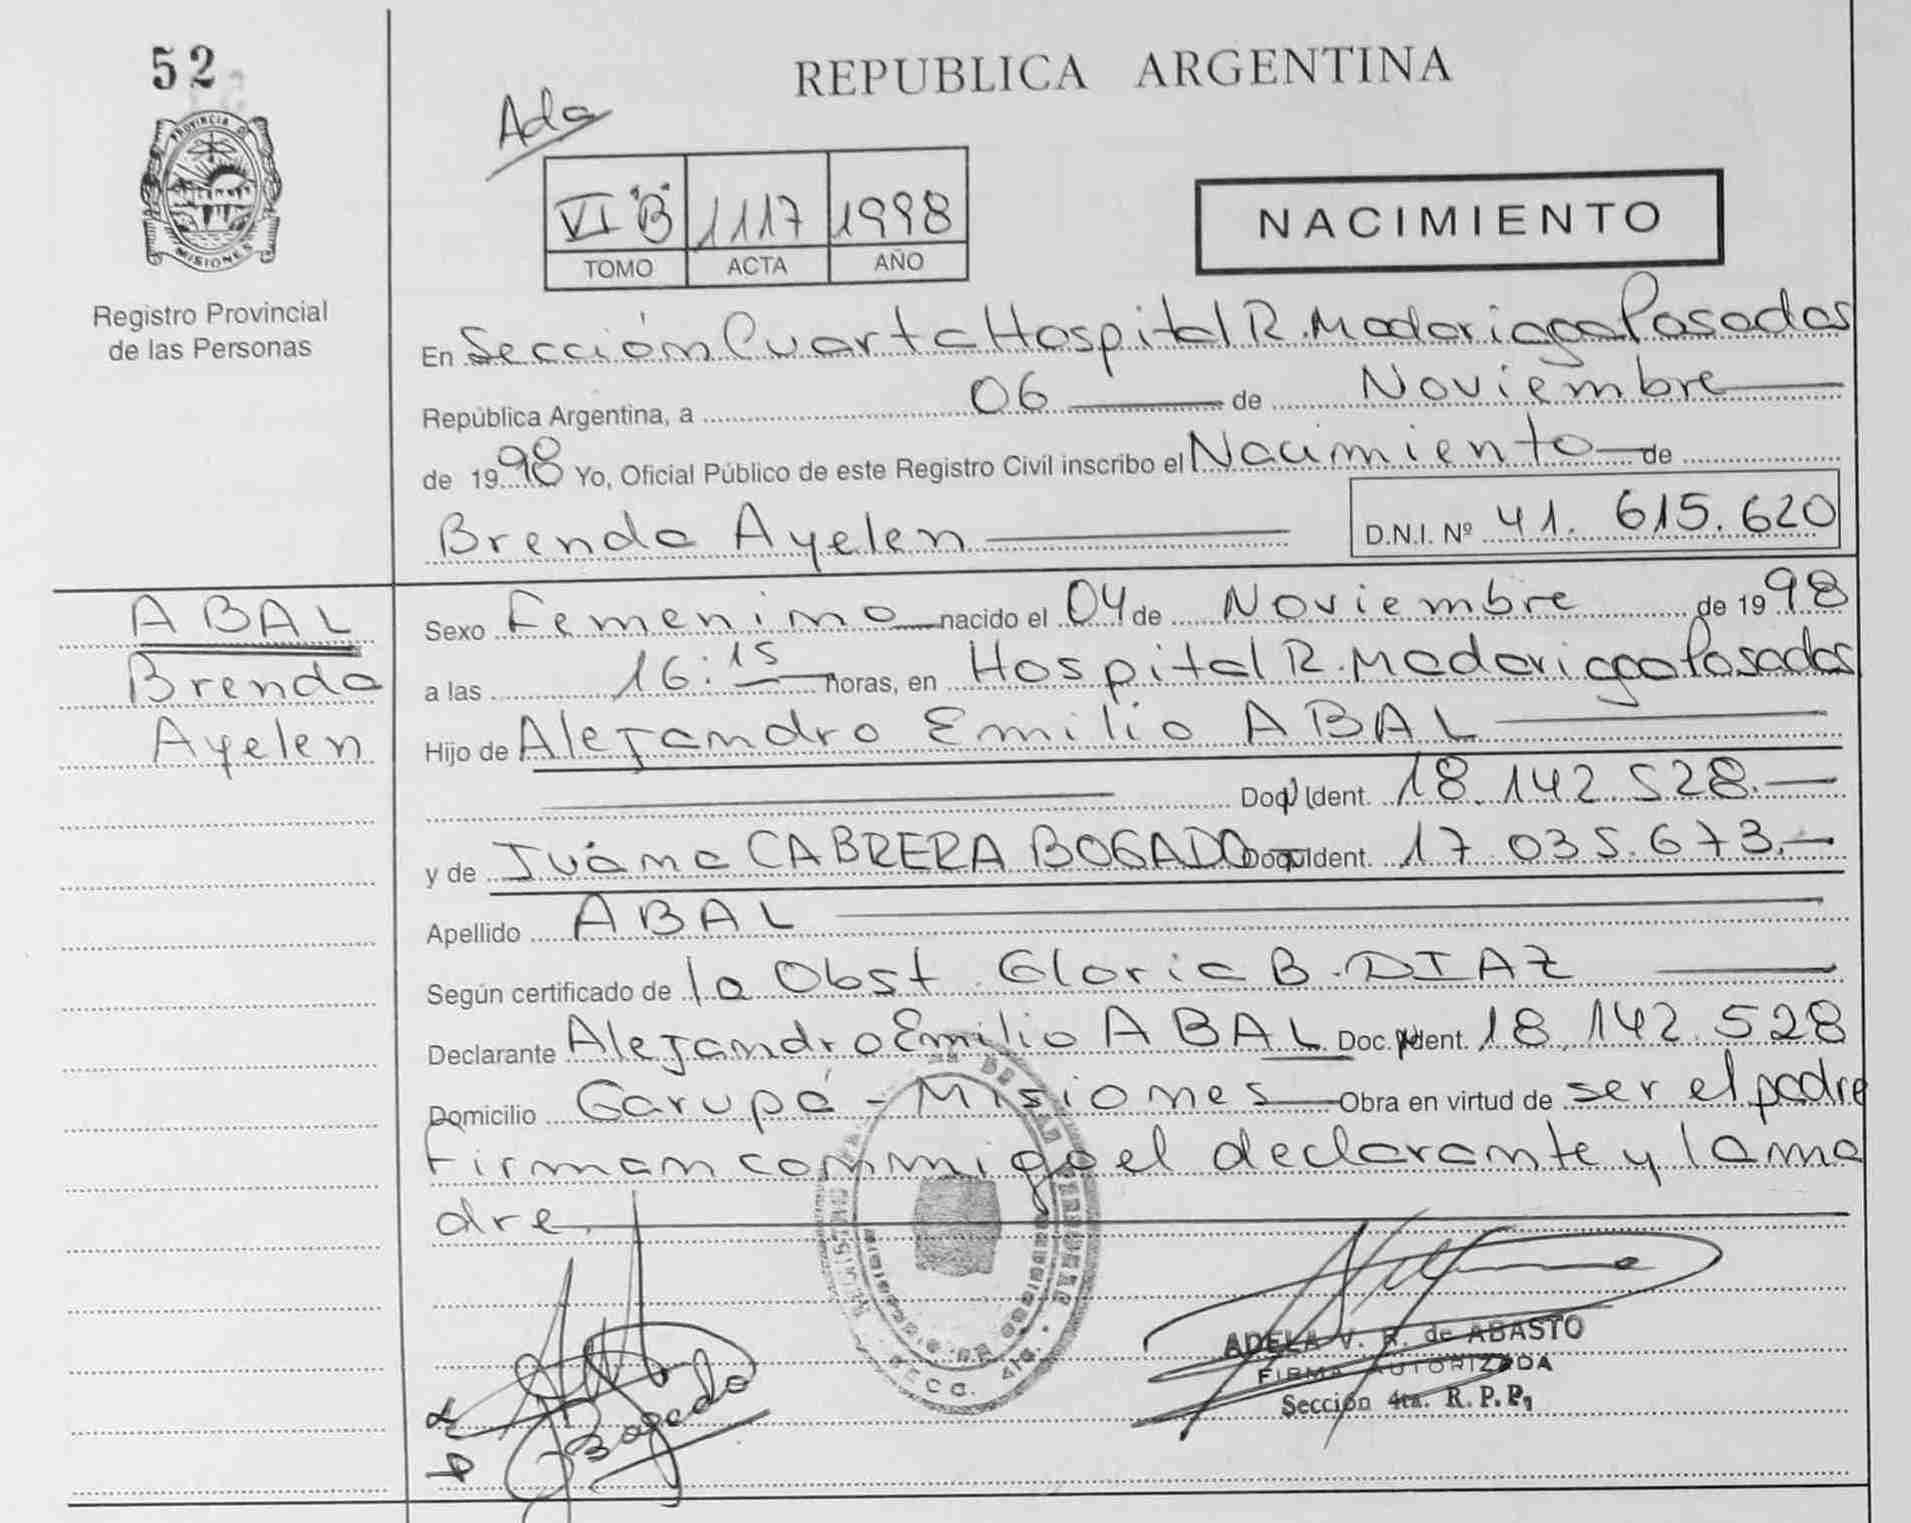 52
PROVINCIA D
MISIONES
Registro Provincial
de las Personas
REPUBLICA ARGENTINA
Ada
VI "B" 1117 1998
TOMO ACTA AÑO
NACIMIENTO
En Sección Cuarta Hospital R. Madariaga Posadas
República Argentina, a 06 de Noviembre
de 1998 Yo, Oficial Público de este Registro Civil inscribo el Nacimiento de
Brenda Ayelen D.N.I. Nº 41.615.620
ABAL
Brenda
Ayelen
Sexo Femenino nacido el 04 de Noviembre de 1998
a las 16:15 horas, en Hospital R. Madariaga Posadas
Hijo de Alejandro Emilio ABAL
Doc. Ident. 18.142.528.
y de Juana CABRERA BOGADO Doc. Ident. 17.035.673.
Apellido ABAL
Según certificado de la Obst. Gloria B. DIAZ
Declarante Alejandro Emilio ABAL Doc. Ident. 18.142.528
Domicilio Garupá - Misiones Obra en virtud de ser el padre
Firman conmigo el declarante y la ma
dre.
Bogado
SECC. 4ta.
ADELA V. R. de ABASTO
FIRMA AUTORIZADA
Sección 4ta. R. P. P.